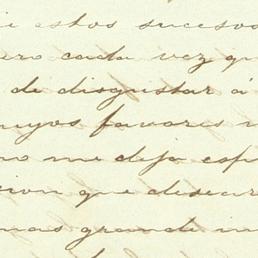 estos sucesos
ero cada vez qu
de disgustar á
uyos favores
no me deja esp
cion que desear
mas grande in